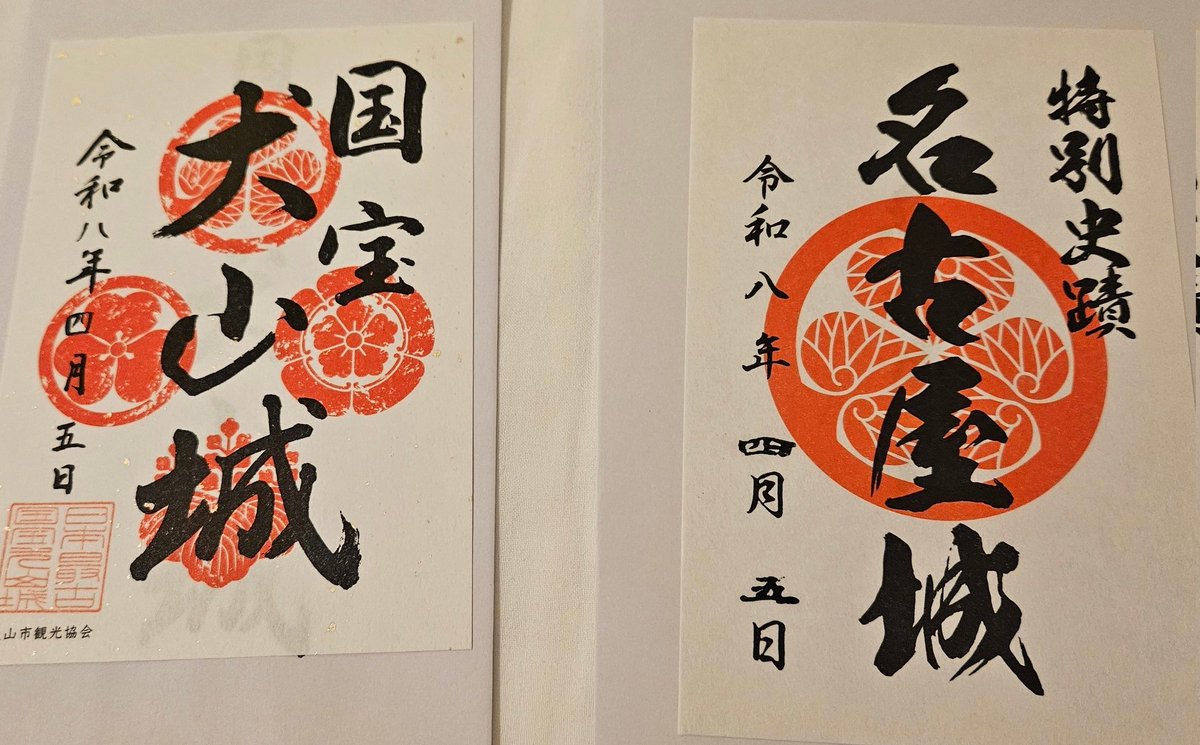 国宝
犬山城
令和八年四月五日
日本最古
山市観光協会
特別史蹟
名古屋城
令和八年四月五日